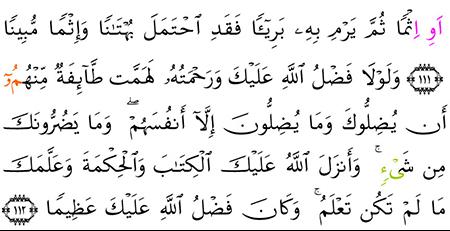 اَوِ اِثْمًا ثُمَّ يَرْمِ بِهِۦ بَرِيٓـًٔا فَقَدِ ٱحْتَمَلَ بُهْتَـٰنًا وَإِثْمًا مُّبِينًا
١١١ وَلَوْلَا فَضْلُ ٱللَّهِ عَلَيْكَ وَرَحْمَتُهُۥ لَهَمَّت طَّآئِفَةٌ مِّنْهُمُۥٓ
أَن يُضِلُّوكَ وَمَا يُضِلُّونَ إِلَّآ أَنفُسَهُمْ ۖ وَمَا يَضُرُّونَكَ
مِن شَىْءٍ ۚ وَأَنزَلَ ٱللَّهُ عَلَيْكَ ٱلْكِتَـٰبَ وَٱلْحِكْمَةَ وَعَلَّمَكَ
مَا لَمْ تَكُن تَعْلَمُ ۚ وَكَانَ فَضْلُ ٱللَّهِ عَلَيْكَ عَظِيمًا ١١٢